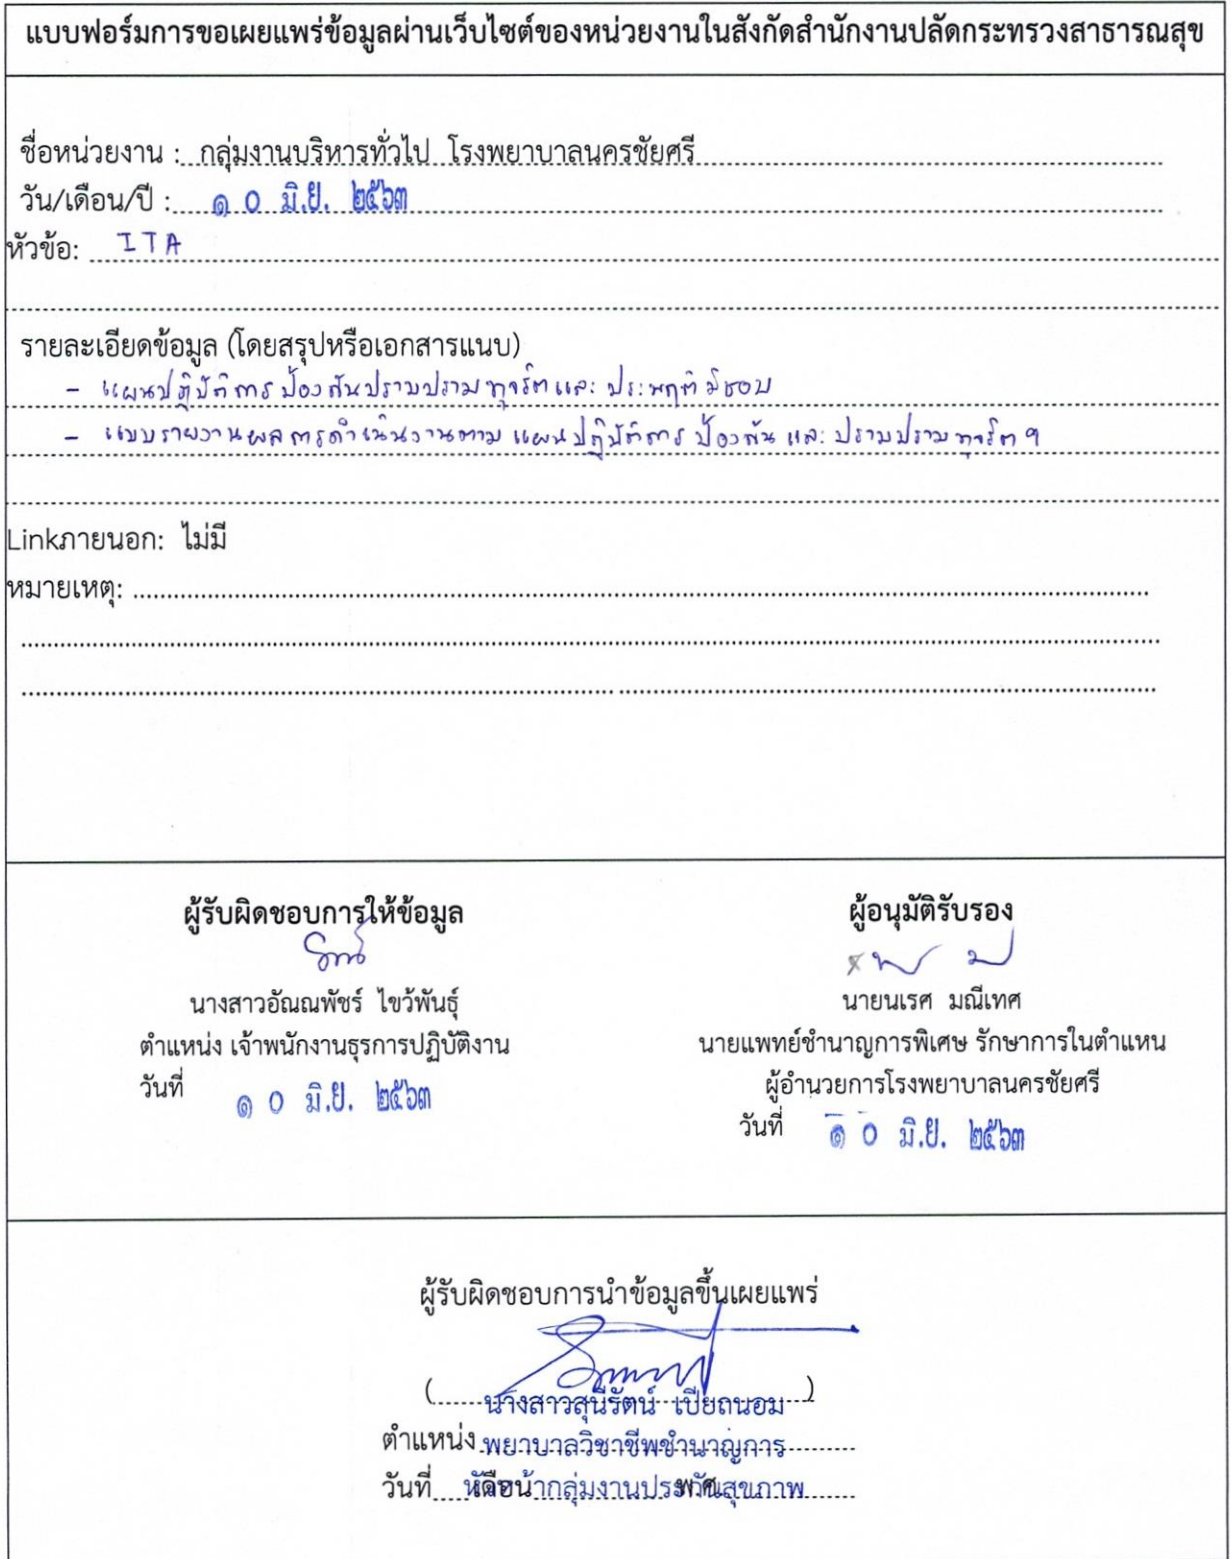 แบบฟอร์มการขอเผยแพร่ข้อมูลผ่านเว็บไซต์ของหน่วยงานในสังกัดสำนักงานปลัดกระทรวงสาธารณสุข
ชื่อหน่วยงาน : กลุ่มงานบริหารทั่วไป โรงพยาบาลนครชัยศรี
วัน/เดือน/ปี : ๑ ๐ มิ.ย. ๒๕๖๓
หัวข้อ: ITA
รายละเอียดข้อมูล (โดยสรุปหรือเอกสารแนบ)
- แผนปฏิบัติการป้องกันปราบปรามทุจริตและประพฤติมิชอบ
- แบบรายงานผลการดำเนินงานตามแผนปฏิบัติการป้องกันและปราบปรามทุจริตฯ
Linkภายนอก: ไม่มี
หมายเหตุ:
ผู้รับผิดชอบการให้ข้อมูล
นางสาวอัณณพัชร์ ไขว้พันธุ์
ตำแหน่ง เจ้าพนักงานธุรการปฏิบัติงาน
วันที่ ๑ ๐ มิ.ย. ๒๕๖๓
ผู้อนุมัติรับรอง
นายนเรศ มณีเทศ
นายแพทย์ชำนาญการพิเศษ รักษาการในตำแหน
ผู้อำนวยการโรงพยาบาลนครชัยศรี
วันที่ ๑ ๐ มิ.ย. ๒๕๖๓
ผู้รับผิดชอบการนำข้อมูลขึ้นเผยแพร่
(นางสาวสุนีรัตน์ เปียถนอม)
ตำแหน่ง พยาบาลวิชาชีพชำนาญการ
วันที่ หัวหน้ากลุ่มงานประกันสุขภาพ